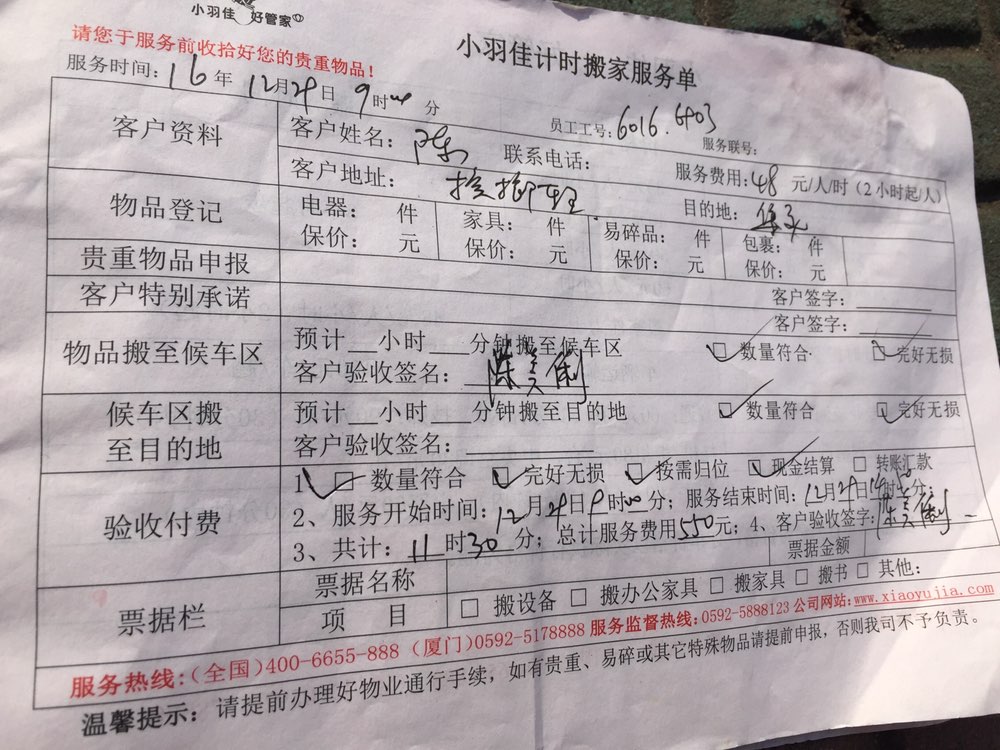 小羽佳 好管家
请您于服务前收拾好您的贵重物品！
小羽佳计时搬家服务单
服务时间：16年 12月29日 9时00分
员工工号：6016.6403
服务联号：
客户资料
客户姓名：陈 联系电话： 服务费用：48 元/人/时（2小时起/人）
客户地址： 目的地：集美
物品登记
电器： 件 家具： 件 易碎品： 件 包裹： 件
保价： 元 保价： 元 保价： 元 保价： 元
贵重物品申报
客户签字：
客户特别承诺
客户签字：
物品搬至候车区
预计__小时__分钟搬至候车区 数量符合 完好无损
客户验收签名：陈美俐
候车区搬至目的地
预计__小时__分钟搬至目的地 数量符合 完好无损
客户验收签名：
验收付费
1、 数量符合 完好无损 按需归位 现金结算 转账汇款
2、服务开始时间：12月29日9时00分；服务结束时间：12月29日 分；
3、共计：11时30分；总计服务费用550元；4、客户验收签字：陈美俐
票据栏
票据名称 票据金额
项 目 搬设备 搬办公家具 搬家具 搬书 其他：
服务热线：（全国）400-6655-888（厦门）0592-5178888 服务监督热线：0592-5888123 公司网站：www.xiaoyujia.com
温馨提示：请提前办理好物业通行手续，如有贵重、易碎或其它特殊物品请提前申报，否则我司不予负责。